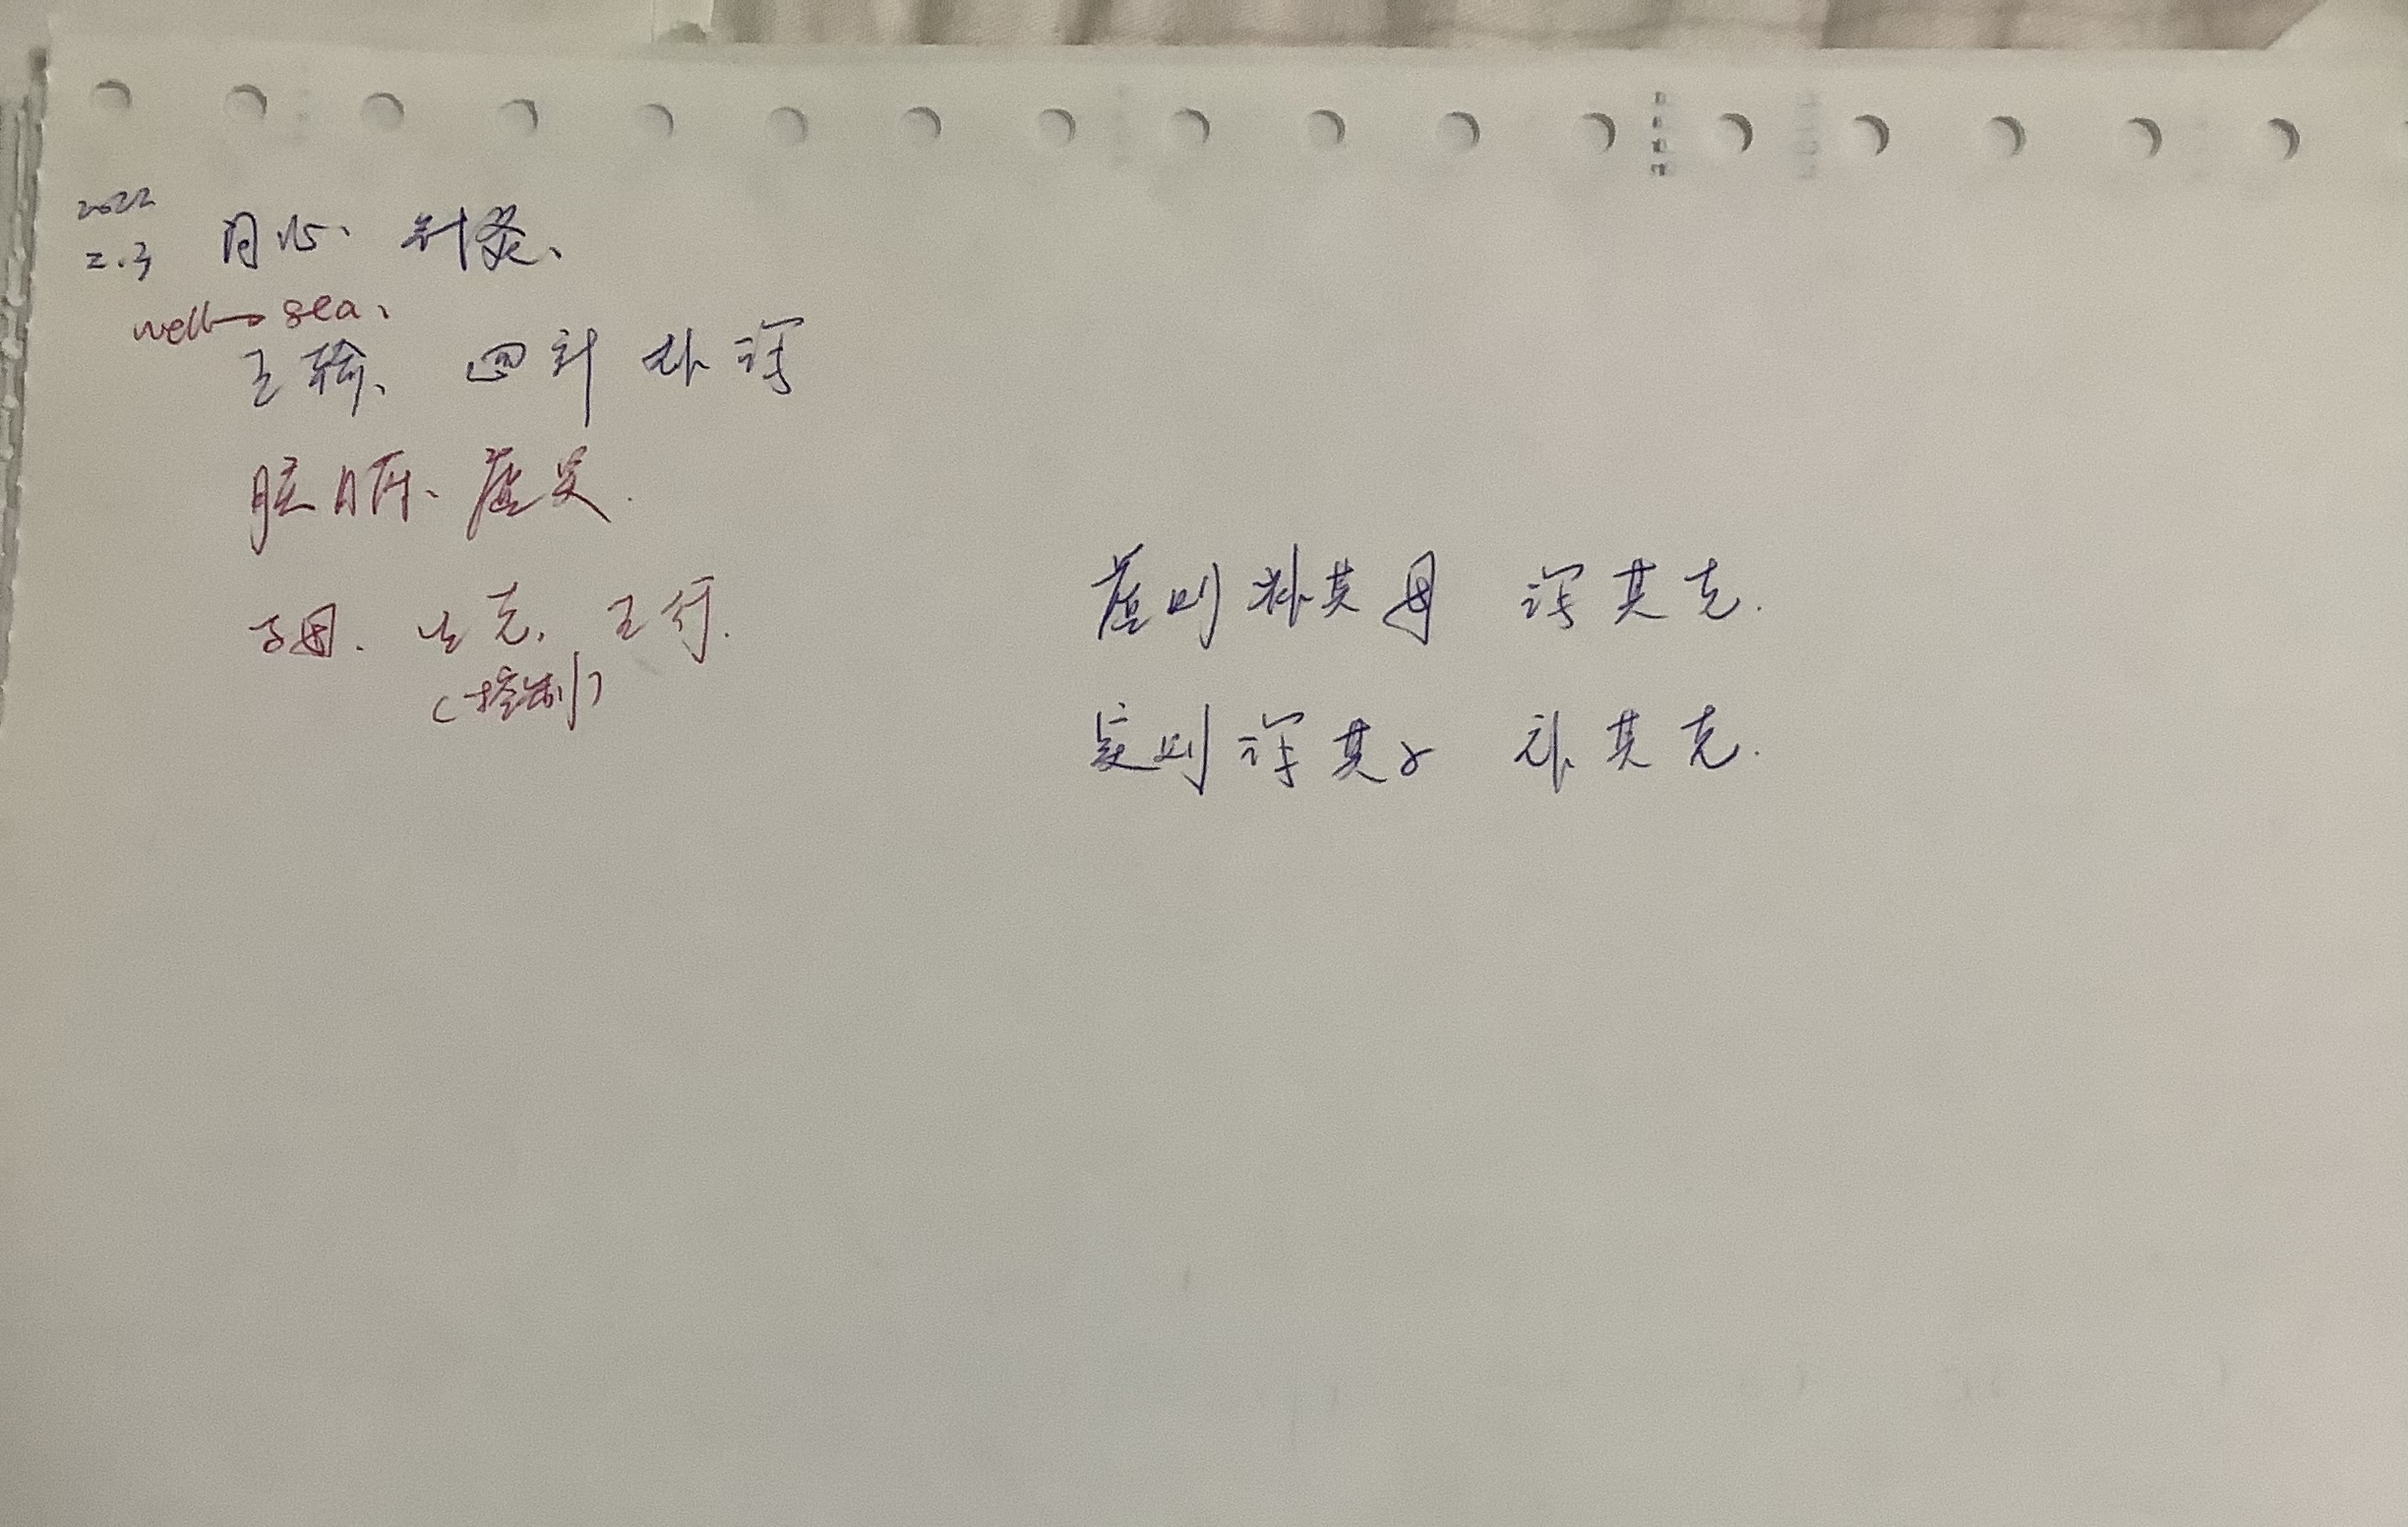 2022
2.3 同心、针灸、
well→sea、
五输、四针补泻
脏腑、虚实.
子母. 生克. 五行.
(控制)
虚则补其母 泻其克.
实则泻其子 补其克.